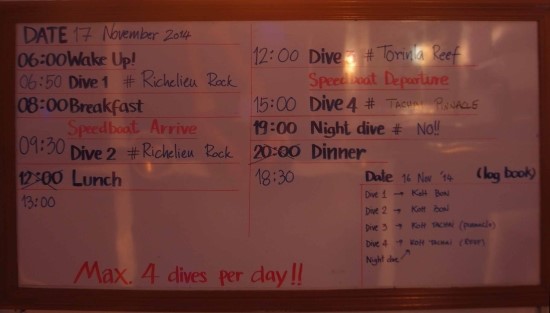 DATE 17 November 2014
06:00 Wake Up!
06:50 Dive 1 # Richelieu Rock
08:00 Breakfast
Speedboat Arrive
09:30 Dive 2 # Richelieu Rock
12:00 Lunch
13:00
12:00 Dive 3 # Torinla Reef
Speedboat Departure
15:00 Dive 4 # TACHAI PINNACLE
19:00 Night dive # NO!!
20:00 Dinner
18:30
Date 16 Nov '14 (log book)
Dive 1 → KOH BON
Dive 2 → KOH BON
Dive 3 → KOH TACHAI (PINNACLE)
Dive 4 → KOH TACHAI (REEF)
Night dive ↗
Max. 4 dives per day!!